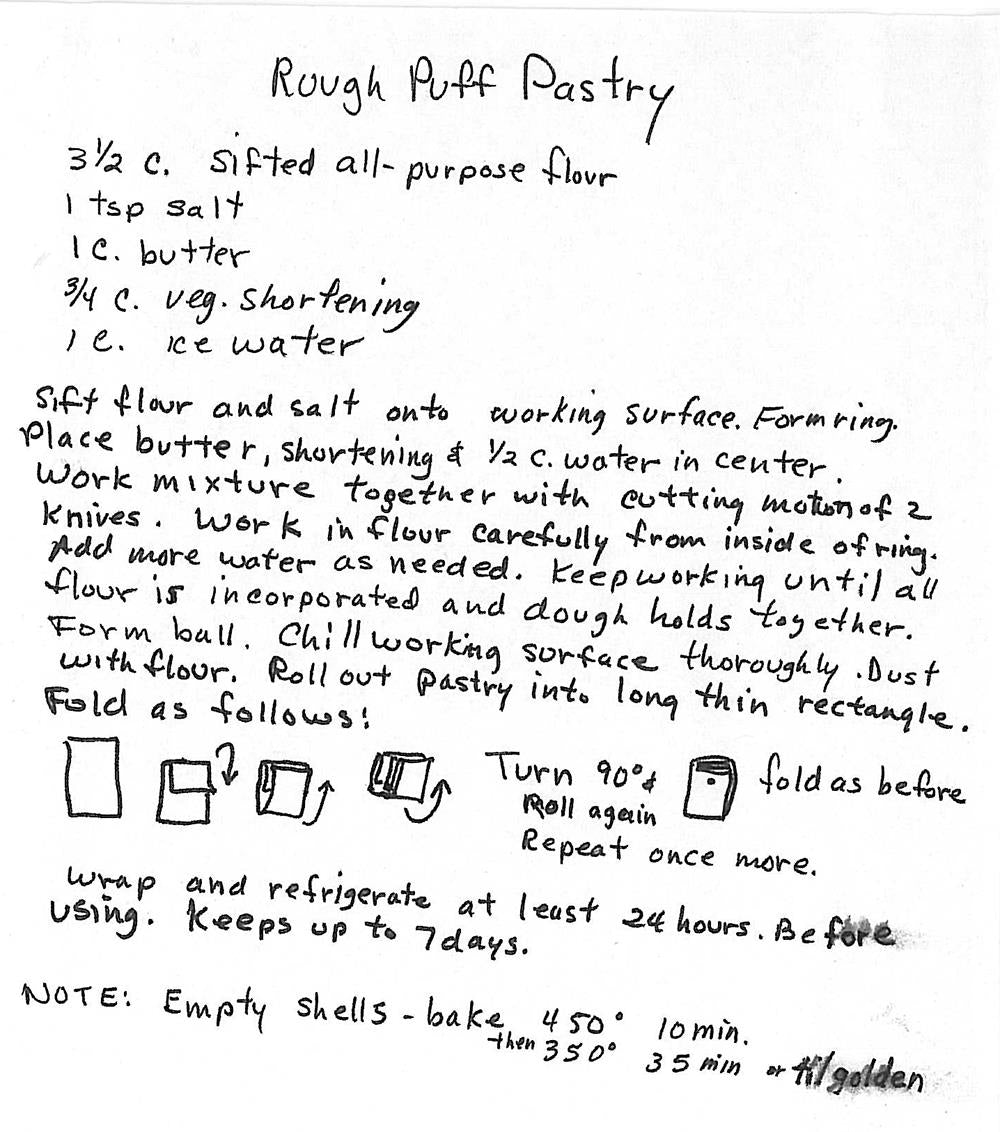 Rough Puff Pastry
3½ c. sifted all-purpose flour
1 tsp salt
1 c. butter
¾ c. veg. shortening
1 c. ice water
Sift flour and salt onto working surface. Form ring.
Place butter, shortening & ½ c. water in center.
Work mixture together with cutting motion of 2
knives. Work in flour carefully from inside of ring.
Add more water as needed. Keep working until all
flour is incorporated and dough holds together.
Form ball. Chill working surface thoroughly. Dust
with flour. Roll out pastry into long thin rectangle.
Fold as follows:
Turn 90° & fold as before
Roll again
Repeat once more.
Wrap and refrigerate at least 24 hours. Before
using. Keeps up to 7 days.
NOTE: Empty shells - bake 450° 10 min.
then 350° 35 min or til golden